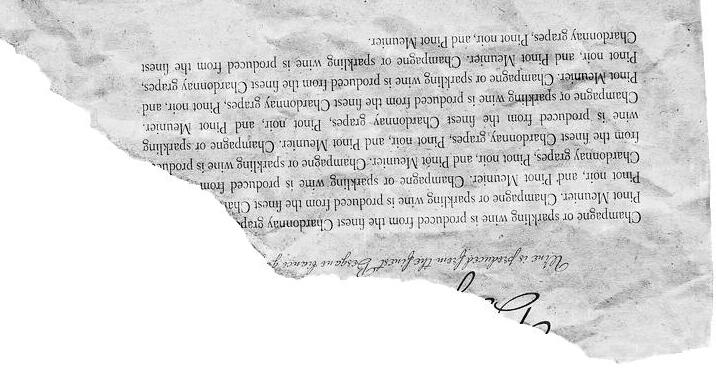 Wine is produced from the finest
Champagne or sparkling wine is produced from the finest Chardonnay grap
Pinot Meunier. Champagne or sparkling wine is produced from the finest Char
Pinot noir, and Pinot Meunier. Champagne or sparkling wine is produced from
Chardonnay grapes, Pinot noir, and Pinot Meunier. Champagne or sparkling wine is produc
from the finest Chardonnay grapes, Pinot noir, and Pinot Meunier. Champagne or sparkling
wine is produced from the finest Chardonnay grapes, Pinot noir, and Pinot Meunier.
Champagne or sparkling wine is produced from the finest Chardonnay grapes, Pinot noir, and
Pinot Meunier. Champagne or sparkling wine is produced from the finest Chardonnay grapes,
Pinot noir, and Pinot Meunier. Champagne or sparkling wine is produced from the finest
Chardonnay grapes, Pinot noir, and Pinot Meunier.